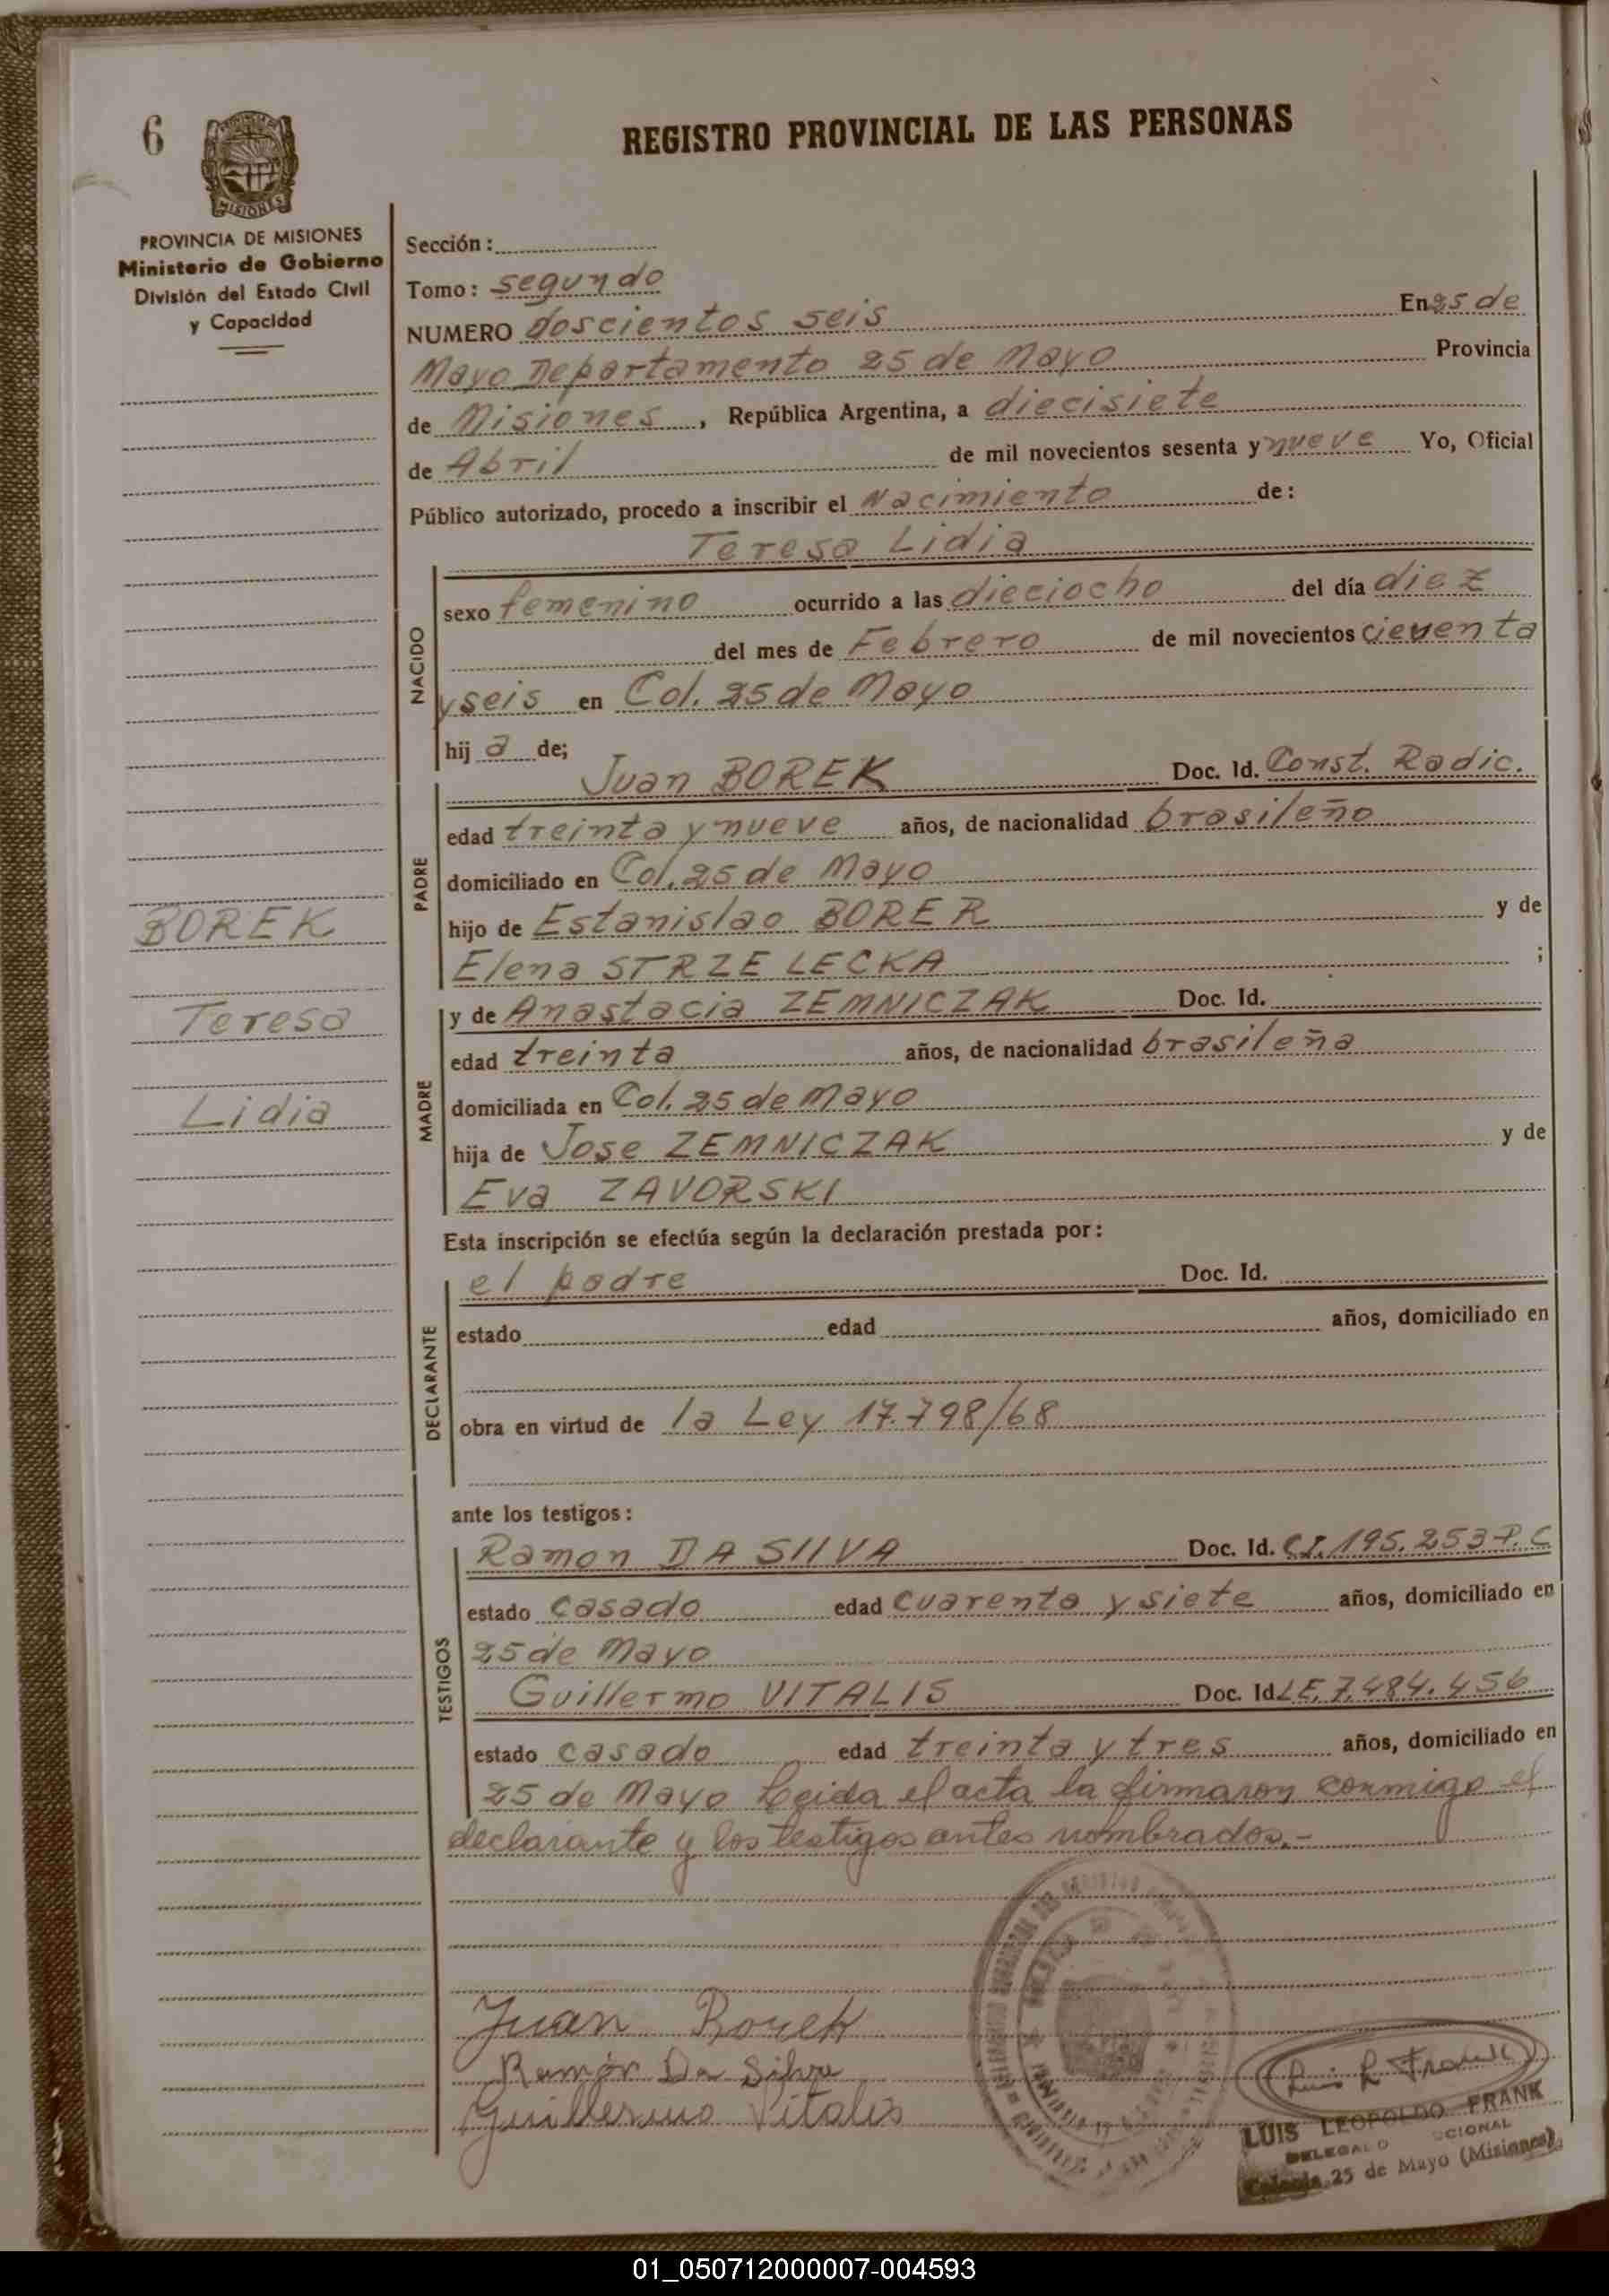 6
REGISTRO PROVINCIAL DE LAS PERSONAS
PROVINCIA DE MISIONES
Ministerio de Gobierno
División del Estado Civil
y Capacidad
Sección:
Tomo: segundo
NUMERO doscientos seis En 25 de
Mayo Departamento 25 de Mayo Provincia
de Misiones, República Argentina, a diecisiete
de Abril de mil novecientos sesenta y nueve Yo, Oficial
Público autorizado, procedo a inscribir el Nacimiento de:
Teresa Lidia
NACIDO
sexo femenino ocurrido a las dieciocho del día diez
del mes de Febrero de mil novecientos cicuenta
y seis en Col. 25 de Mayo
hij a de;
Juan BOREK Doc. Id. Const. Radic.
PADRE
edad treinta y nueve años, de nacionalidad brasileño
domiciliado en Col. 25 de Mayo
hijo de Estanislao BORER y de
Elena STRZELECKA ;
BOREK
Teresa
Lidia
MADRE
y de Anastacia ZEMNICZAK Doc. Id.
edad treinta años, de nacionalidad brasileña
domiciliada en Col. 25 de Mayo
hija de Jose ZEMNICZAK y de
Eva ZAVORSKI
Esta inscripción se efectúa según la declaración prestada por:
DECLARANTE
el padre Doc. Id.
estado edad años, domiciliado en
obra en virtud de la Ley 17.798/68
ante los testigos:
TESTIGOS
Ramon DA SIIVA Doc. Id. C.I. 195.253 P.C
estado casado edad cuarenta y siete años, domiciliado en
25 de Mayo
Guillermo VITALIS Doc. Id L.E. 7.484.456
estado casado edad treinta y tres años, domiciliado en
25 de Mayo Leida el acta la firmaron conmigo el
declarante y los testigos antes nombrados.-
Juan Borek
Ramón Da Silva
Guillermo Vitalis
Luis L Frank
LUIS LEOPOLDO FRANK
Colonia 25 de Mayo (Misiones)
01_050712000007-004593